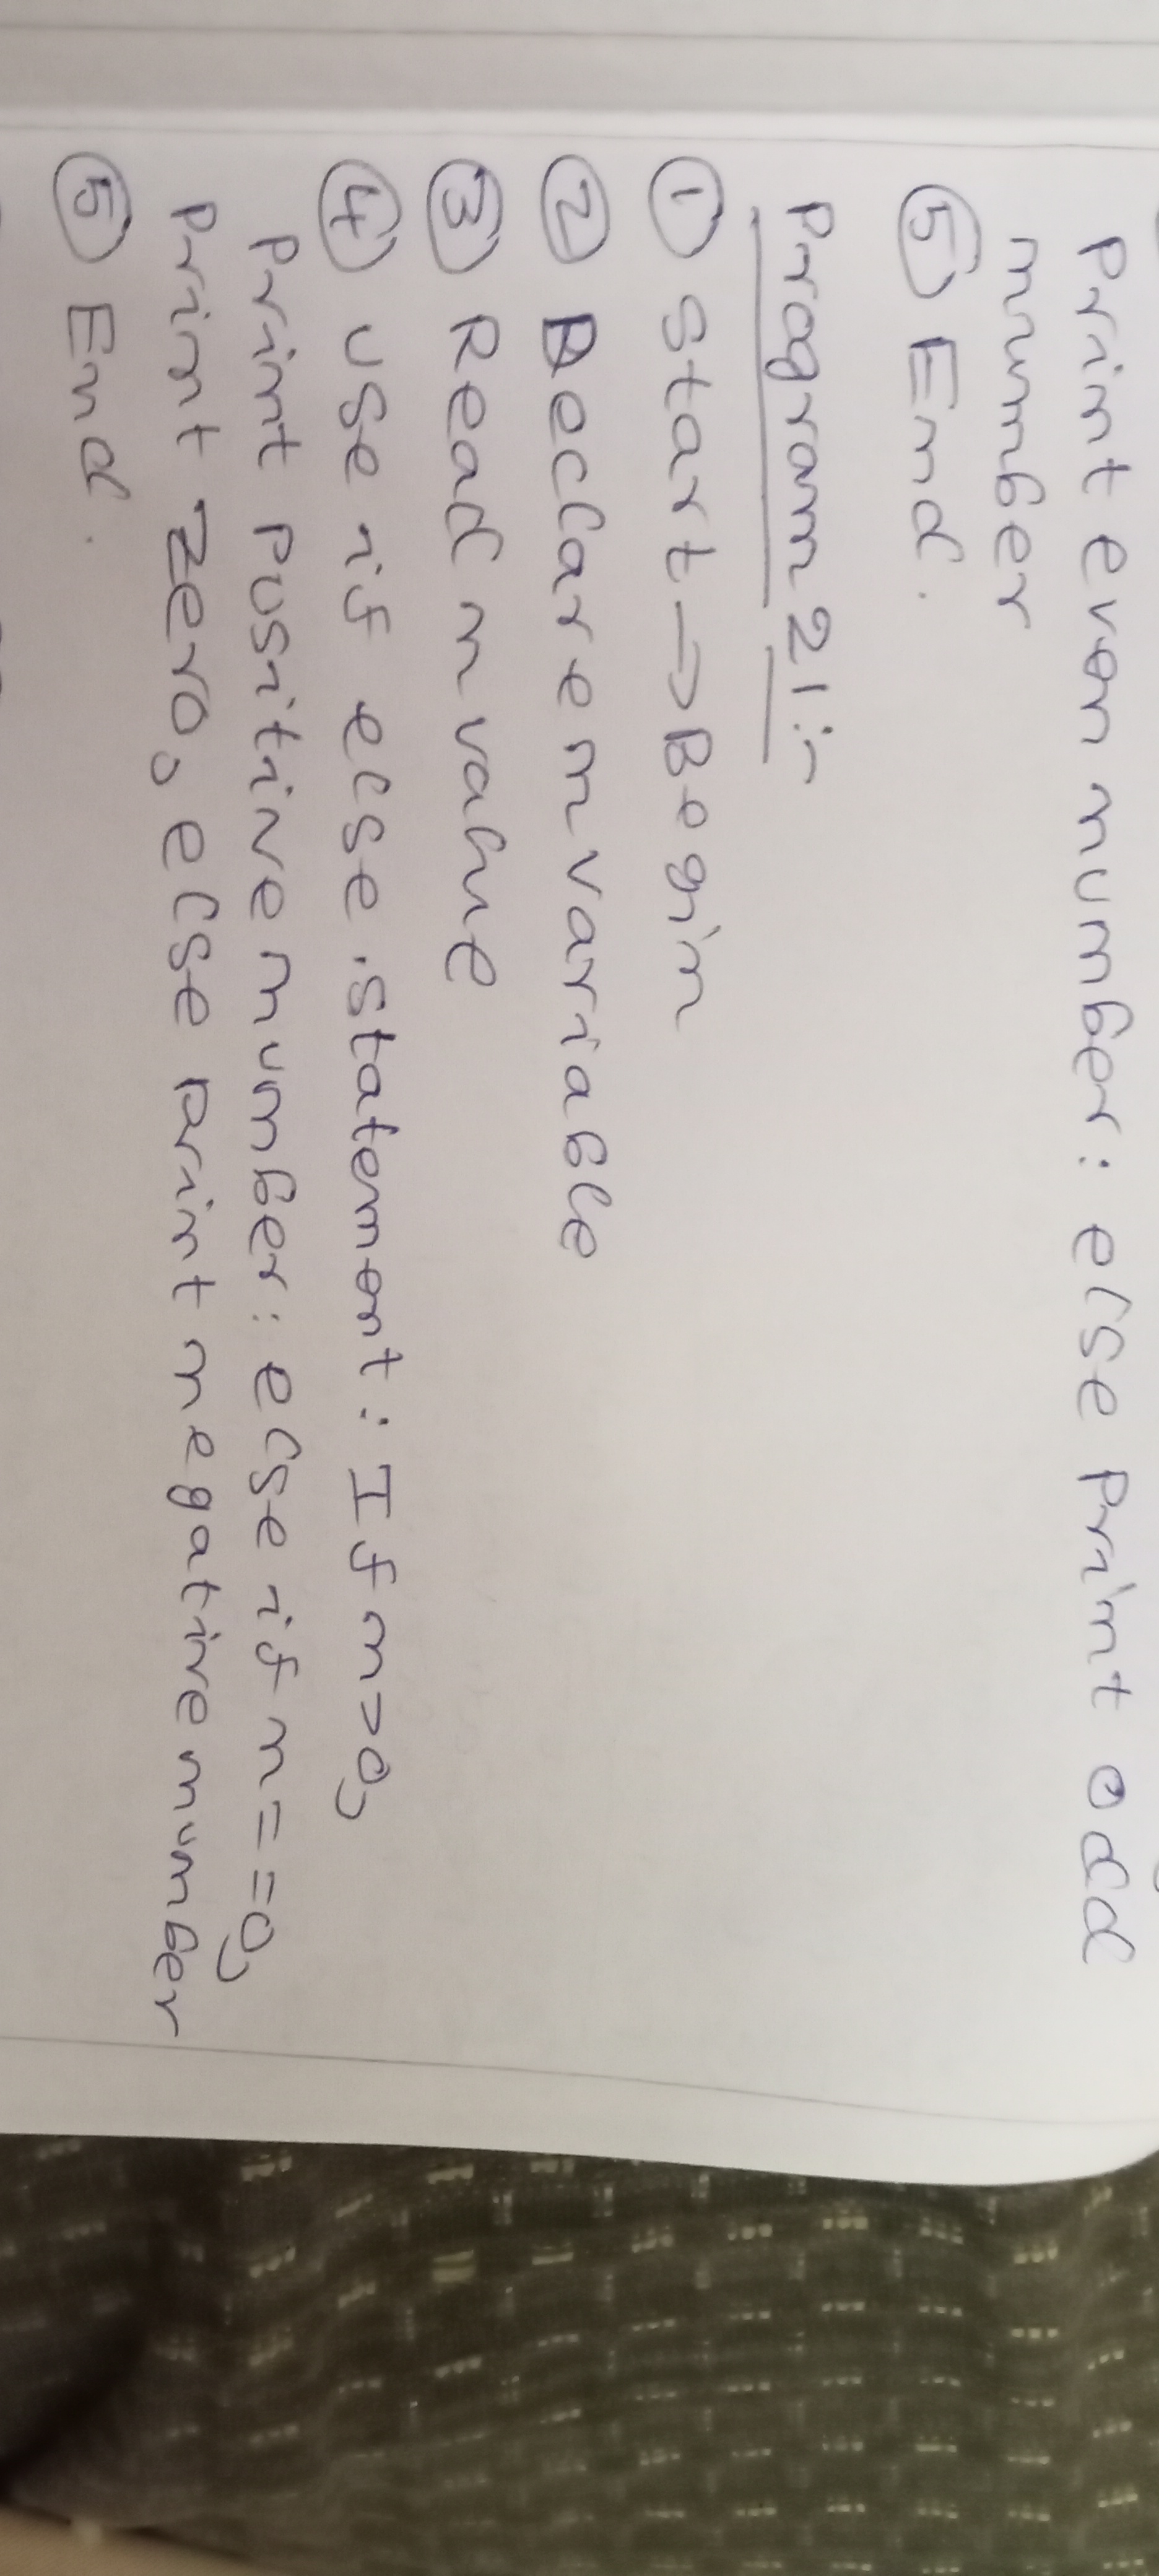 Print even number: else Print odd
number
⑤ End.
Program 21:-
① Start → Begin
② Declare n variable
③ Read n value
④ use if else statement: If n>0,
Print Positive number: else if n==0,
Print zero, else Print negative number
⑤ End.